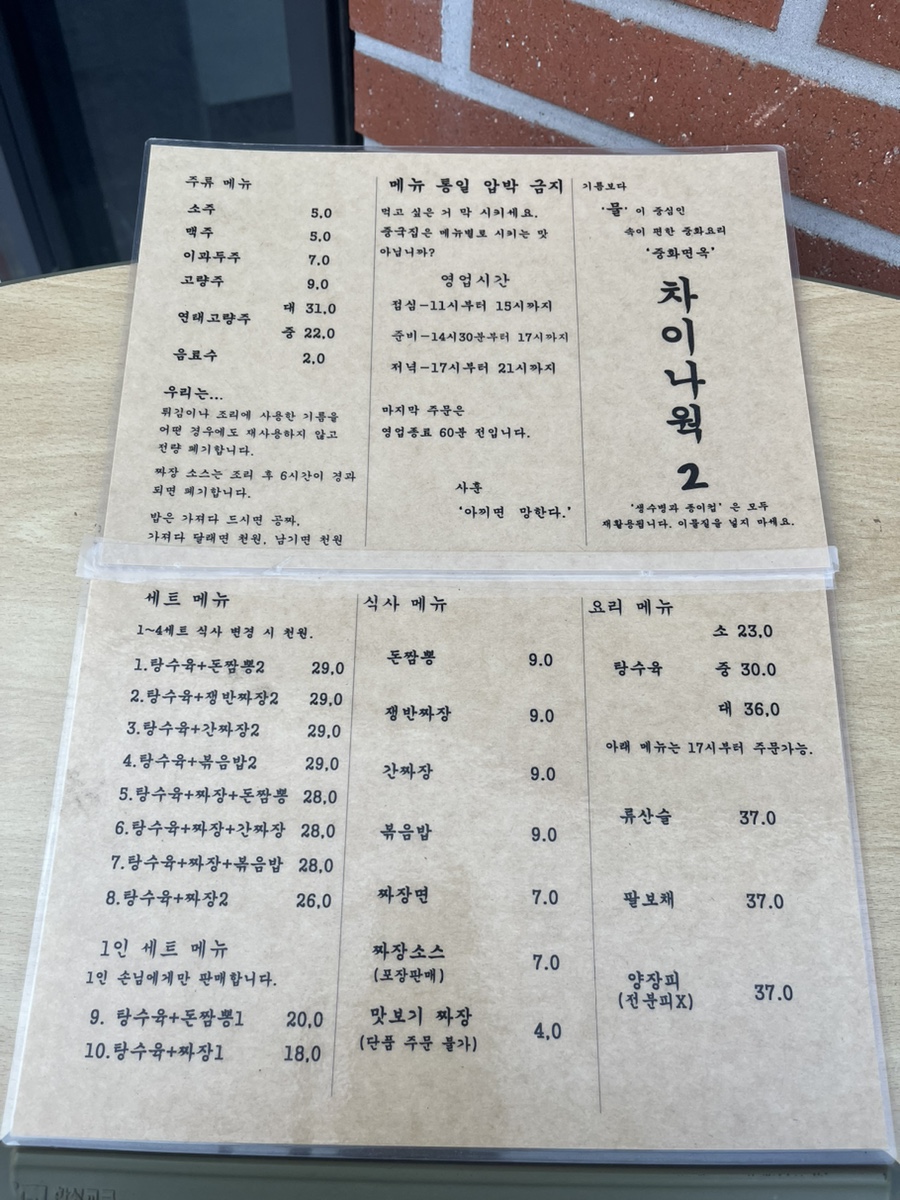 주류 메뉴
소주 5.0
맥주 5.0
이과두주 7.0
고량주 9.0
연태고량주 대 31.0
중 22.0
음료수 2.0
우리는...
튀김이나 조리에 사용한 기름을
어떤 경우에도 재사용하지 않고
전량 폐기합니다.
짜장 소스는 조리 후 6시간이 경과
되면 폐기합니다.
밥은 가져다 드시면 공짜.
가져다 달래면 천원, 남기면 천원
메뉴 통일 압박 금지
먹고 싶은 거 막 시키세요.
중국집은 메뉴별로 시키는 맛
아닙니까?
영업시간
점심-11시부터 15시까지
준비-14시30분부터 17시까지
저녁-17시부터 21시까지
마지막 주문은
영업종료 60분 전입니다.
사훈
'아끼면 망한다.'
기름보다
'물' 이 중심인
속이 편한 중화요리
'중화면옥'
차이나웍 2
'생수병과 종이컵' 은 모두
재활용됩니다. 이물질을 넣지 마세요.
세트 메뉴
1~4세트 식사 변경 시 천원.
1.탕수육+돈짬뽕2 29,0
2.탕수육+쟁반짜장2 29,0
3.탕수육+간짜장2 29,0
4.탕수육+볶음밥2 29,0
5.탕수육+짜장+돈짬뽕 28,0
6.탕수육+짜장+간짜장 28,0
7.탕수육+짜장+볶음밥 28,0
8.탕수육+짜장2 26,0
1인 세트 메뉴
1인 손님에게만 판매합니다.
9. 탕수육+돈짬뽕1 20,0
10.탕수육+짜장1 18,0
식사 메뉴
돈짬뽕 9.0
쟁반짜장 9.0
간짜장 9.0
볶음밥 9.0
짜장면 7.0
짜장소스 7.0
(포장판매)
맛보기 짜장 4,0
(단품 주문 불가)
요리 메뉴
소 23,0
탕수육 중 30.0
대 36,0
아래 메뉴는 17시부터 주문가능.
류산슬 37.0
팔보채 37.0
양장피 37.0
(전분피X)